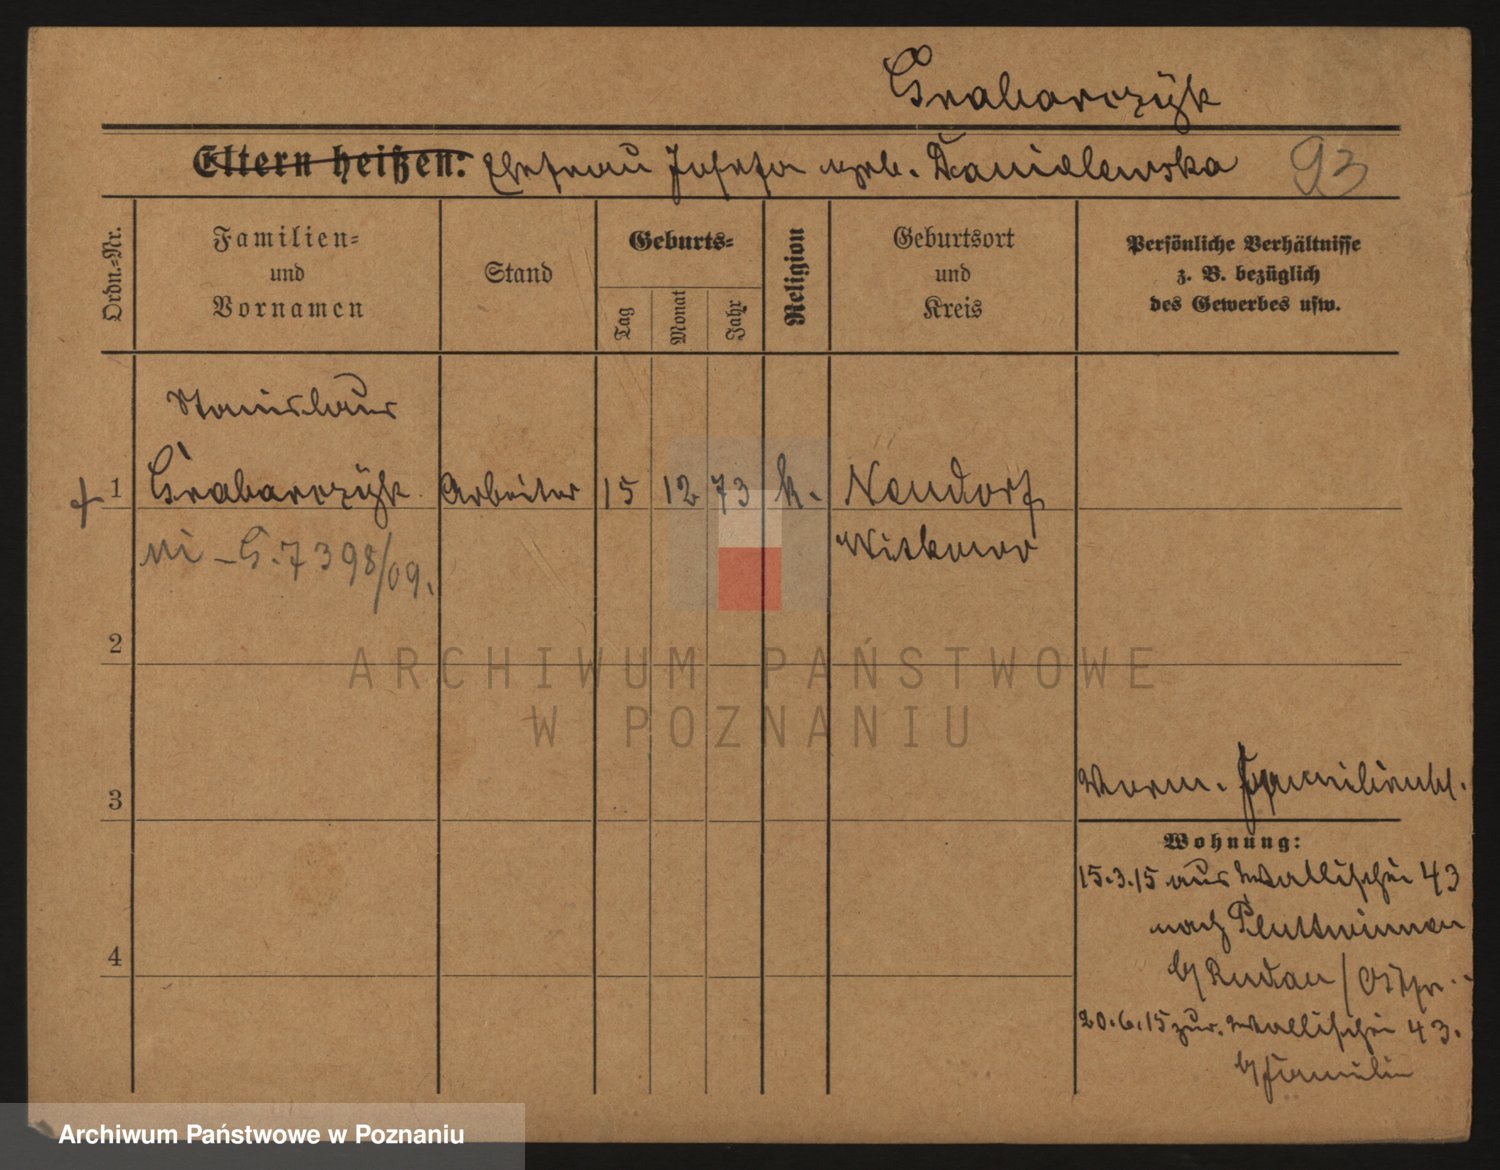 Grabarczÿk
Eltern heißen: Ehefrau Josefa geb. Danielewska 93
Ordn.-Nr.
Familien-
und
Vornamen
Stand
Geburts-
Tag
Monat
Jahr
Religion
Geburtsort
und
Kreis
Persönliche Verhältnisse
z. B. bezüglich
des Gewerbes usw.
Stanislaus
1 Grabarczÿk Arbeiter 15 12 73 k. Neudorf
G. 7398/09. Witkowo
2
ARCHIWUM PAŃSTWOWE
W POZNANIU
3
Familienbl.
Wohnung:
15.3.15 aus Wallischei 43
nach Pluttwinnen
b/ Rudau / Ostpr.
4
20.6.15 zur. Wallischei 43.
b/ Familie
Archiwum Państwowe w Poznaniu